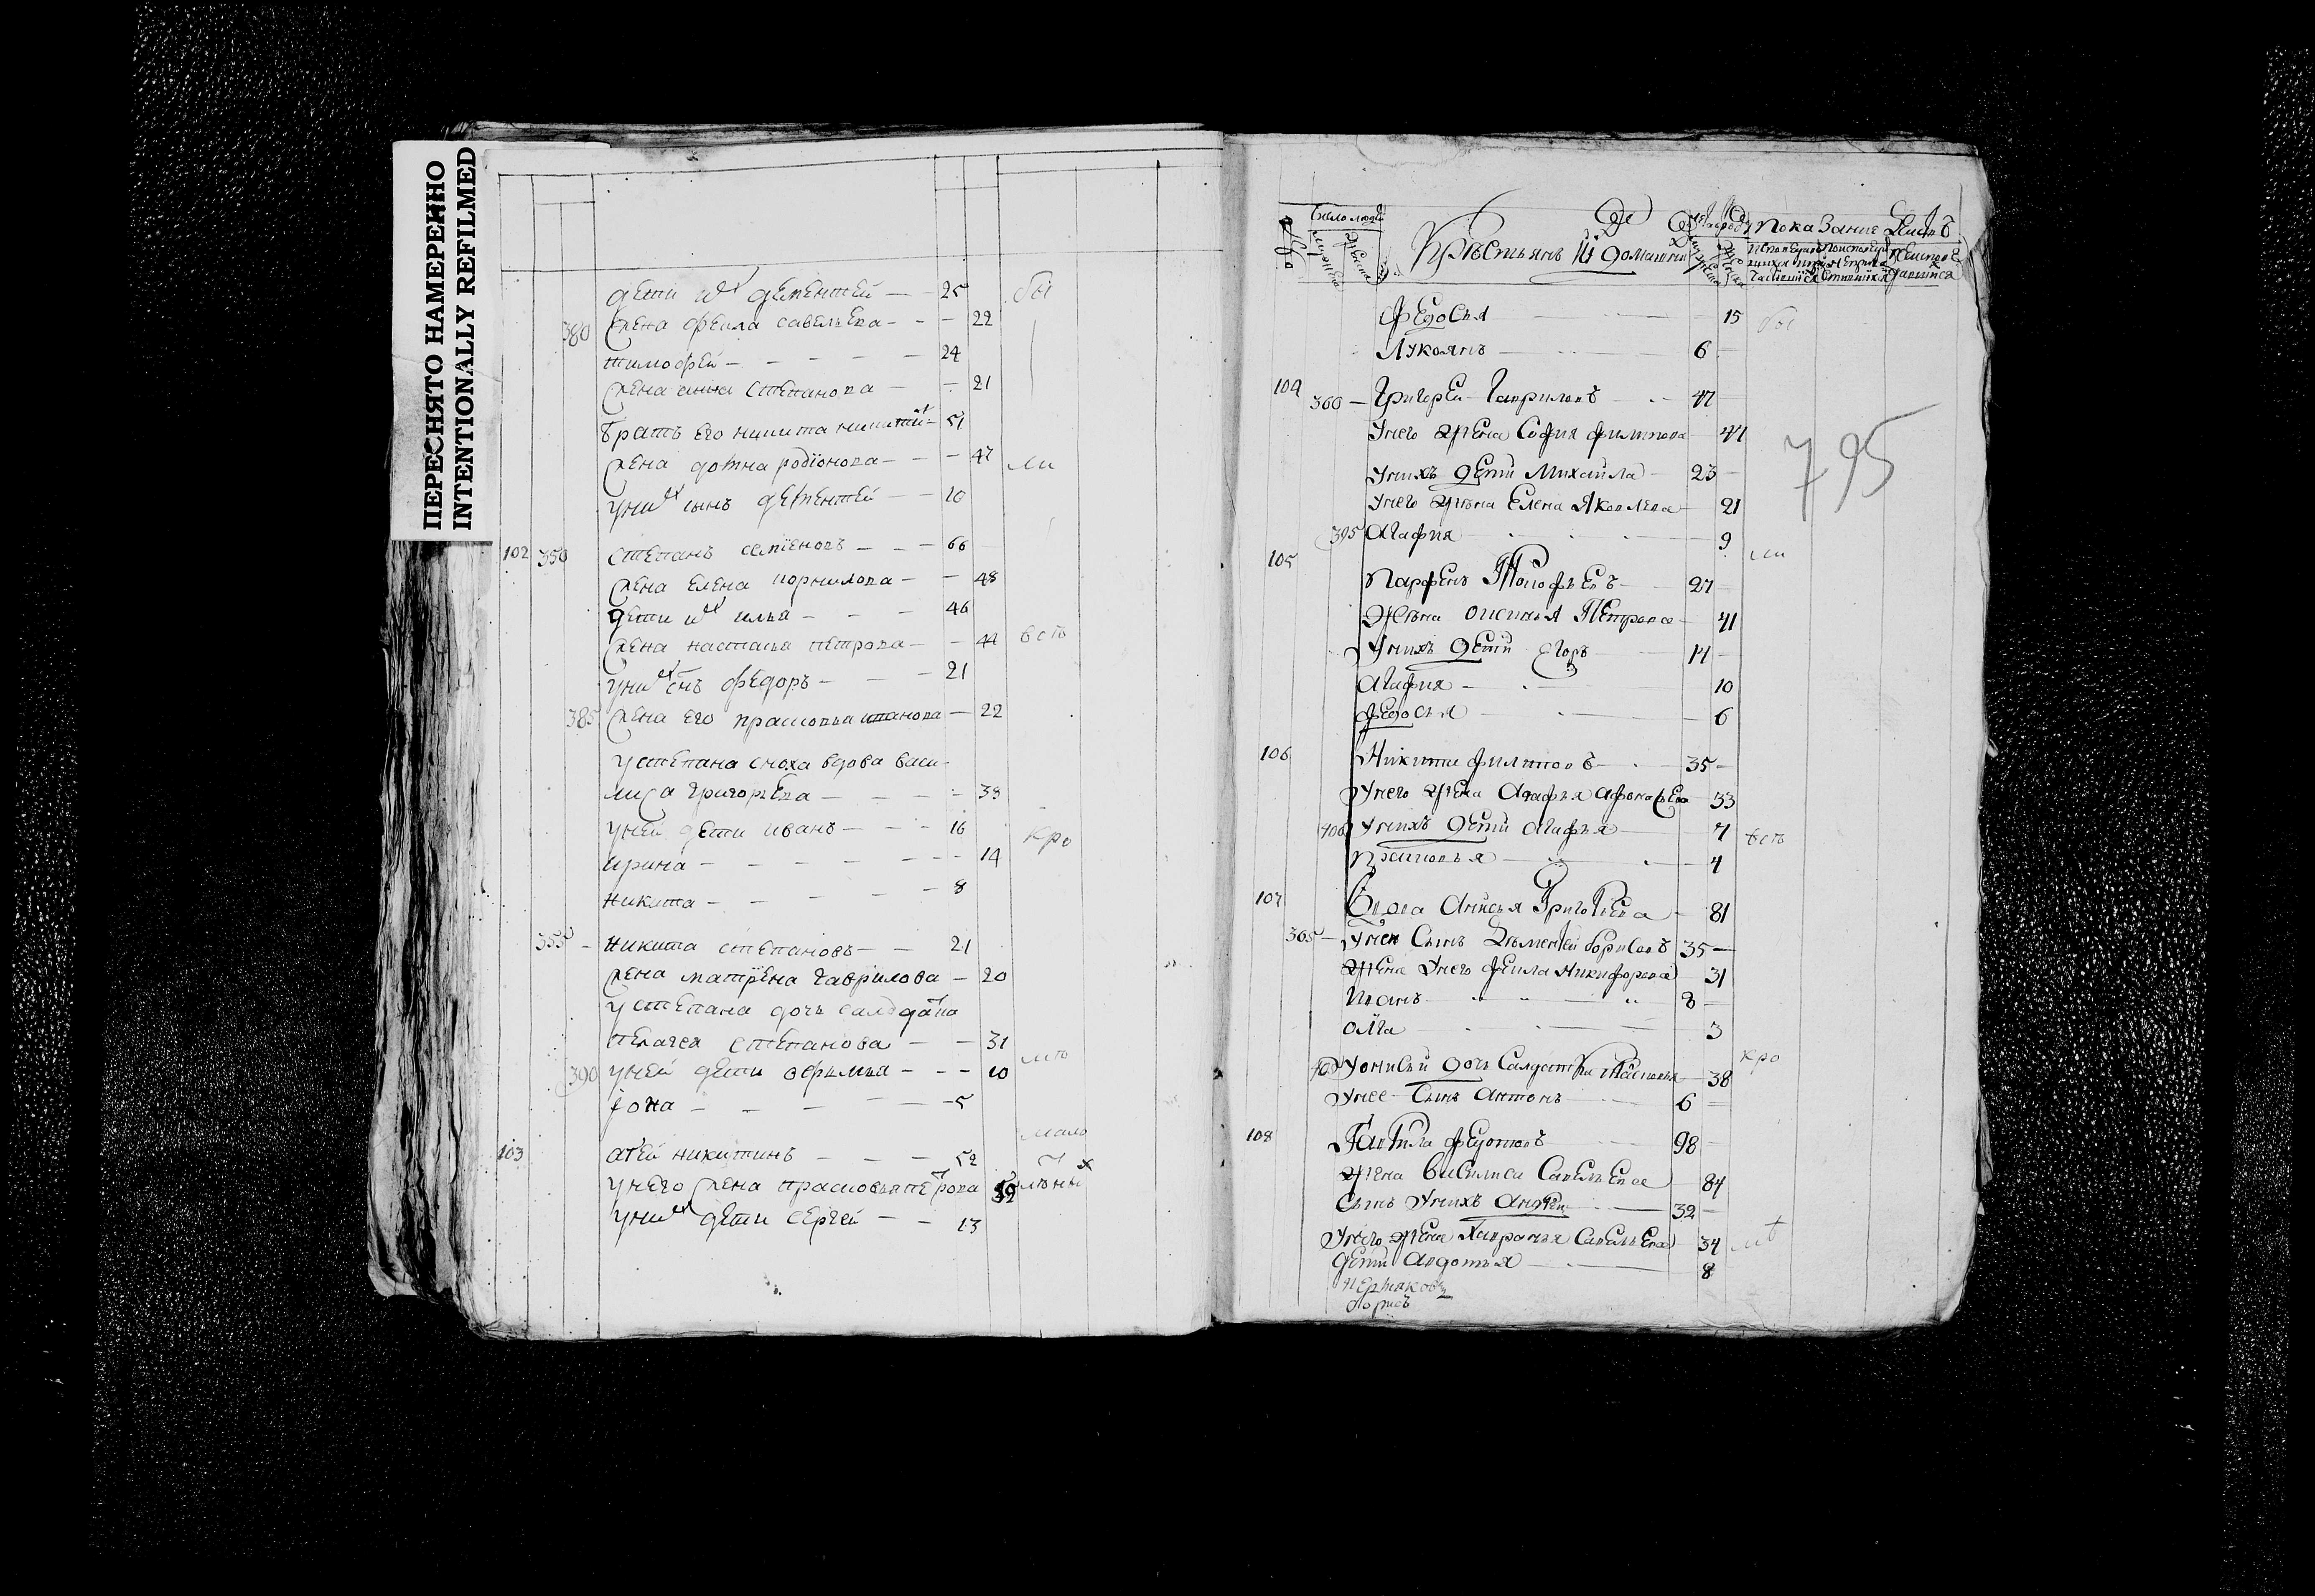 ПЕРЕСНЯТО НАМЕРЕННО
INTENTIONALLY REFILMED
дети их дементей — 25 бы
380 жена фекла савельева — 22
тимофей — 24
жена анна степанова — 21
братъ его никита никитинъ — 51
жена домна родїонова — 47 ли
у них сынъ дементей — 10
102 350 степанъ семїеновъ — 66
жена елена корнилова — 48
дети их илья — 46
жена настасья петрова — 44 всѣ
у них снъ федоръ — 21
385 жена его прасковья иванова — 22
у степана сноха вдова васи-
лиса григорьева — 39
у ней дети иванъ — 16 кро
ирина — 14
никита — 8
355 никита степановъ — 21
жена матрїена гаврилова — 20
у степана дочь салдатка
пелагея степанова — 31 мѣ
390 у ней дети — 10
фока — 5
мало
103 никитинъ — 52
у него жена прасковья петрова 39 лѣтных
у них дети сергей — 13
Число людей
Крестьянъ И домашни
Показание
федосья 15 бы
Лукоянъ 6
104 360 — Григореи Гаврилов 47
У него жена София филипова 41
795
У нихъ дети Михаила 23
У него жена Елена Яковлева 21
395 Агафия 9
105 ли
Парфенъ 27
Жена Петрова 41
У нихъ дети Егоръ 14
Агафия 10
федосья 6
106 Никита филиповъ 35
У него жена Агафья 33
400 У нихъ дети Агафья 7 всѣ
Прасковья 4
107 Вдова Анисья Григорьева 81
365 — У неи Сынъ Дѣментей борисовъ 35
жена У него фекла Никифорова 31
Иванъ 8
олга 3
У онисьи дочь Салдатка 38 кро
У нее Сынъ Антонъ 6
108 Гаврила федотовъ 98
жена Василиса Савельева 84
Сынъ У нихъ Андреи 32
У него жена Хавронья Савельева 34 мѣ
дети Авдотья 8
борисъ